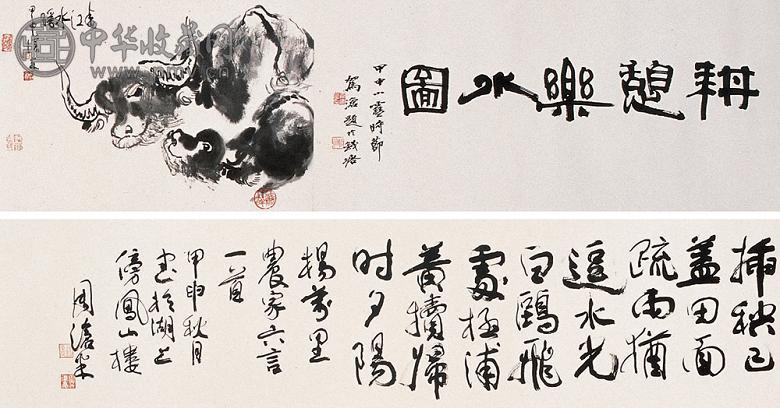 耕憩樂水圖
甲申小雪時節
春江水暖
中华收藏网
插秧已
蓋田面
疏雨猶
逗水光
白鷗飛
處極浦
黃犢歸
時夕陽
楊萬里
農家六言
一首
甲申秋月
書於湖上
傍鳳山樓
周滄米